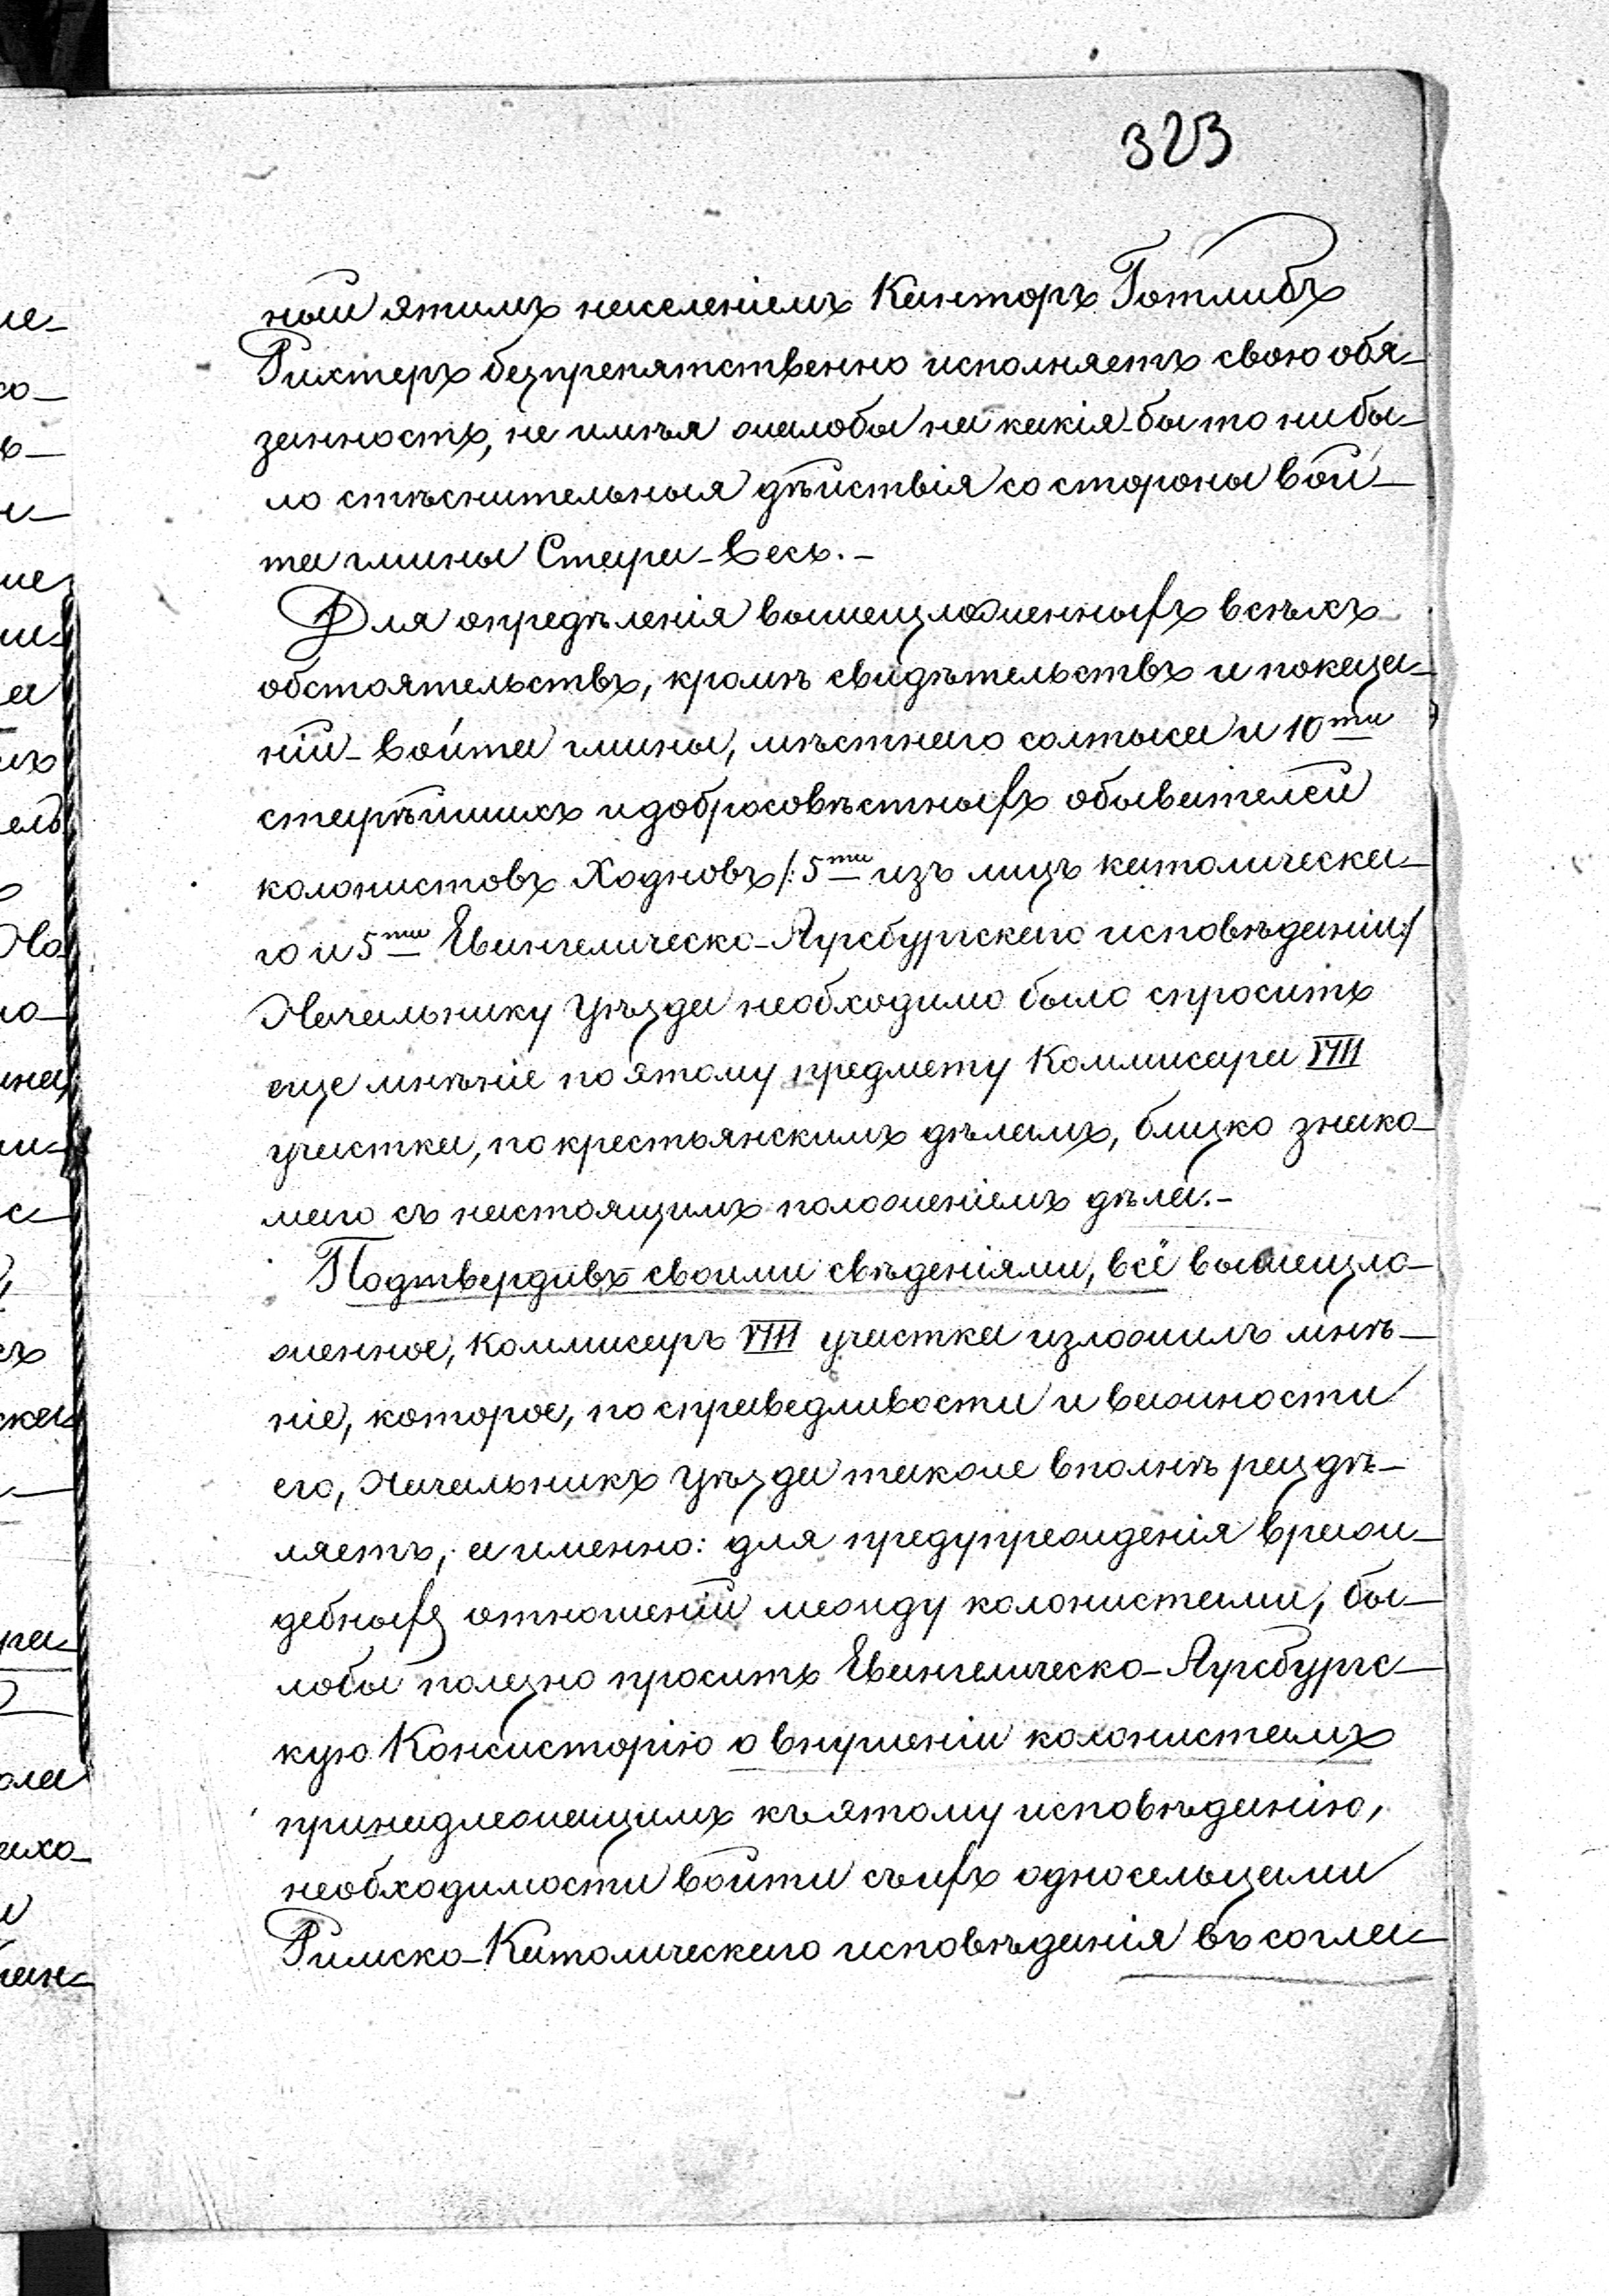 323
ный этимъ населеніемъ Канторъ Готлибъ
Рихтеръ безпрепятственно исполняетъ свою обя-
занность, не имѣя жалобы на какія-бы то ни бы-
ло стѣснительныя дѣйствія со стороны Вой-
та гмины Стара-Весь.-
Для опредѣленія вышеизложенныхъ всѣхъ
обстоятельствъ, кромѣ свидѣтельствъ и показа-
ній-Войта гмины, мѣстнаго солтыса и 10ти
старѣйшихъ и добросовѣстныхъ обывателей
колонистовъ Ходновъ /:5ти изъ лицъ католическа-
го и 5ти Евангелическо-Аугсбургскаго исповѣданій:/
Начальнику Уѣзда необходимо было спросить
еще мнѣніе по этому предмету Коммисара VIII
участка, по крестьянскимъ дѣламъ, близко знако-
маго съ настоящимъ положеніемъ дѣла.-
Подтвердивъ своими свѣденіями, всё вышеизло-
женное, Коммисаръ VIII участка изложилъ мнѣ-
ніе, которое, по справедливости и важности
его, Начальникъ Уѣзда также вполнѣ раздѣ-
ляетъ, а именно: для предупрежденія враж-
дебныхъ отношеній между колонистами, бы-
лобы полезно просить Евангелическо-Аугсбургс-
кую Консисторію о внушеніи колонистамъ
принадлежащимъ къ этому исповѣданію,
необходимости войти съ ихъ односельцами
Римско-Католическаго исповѣданія въ согла-